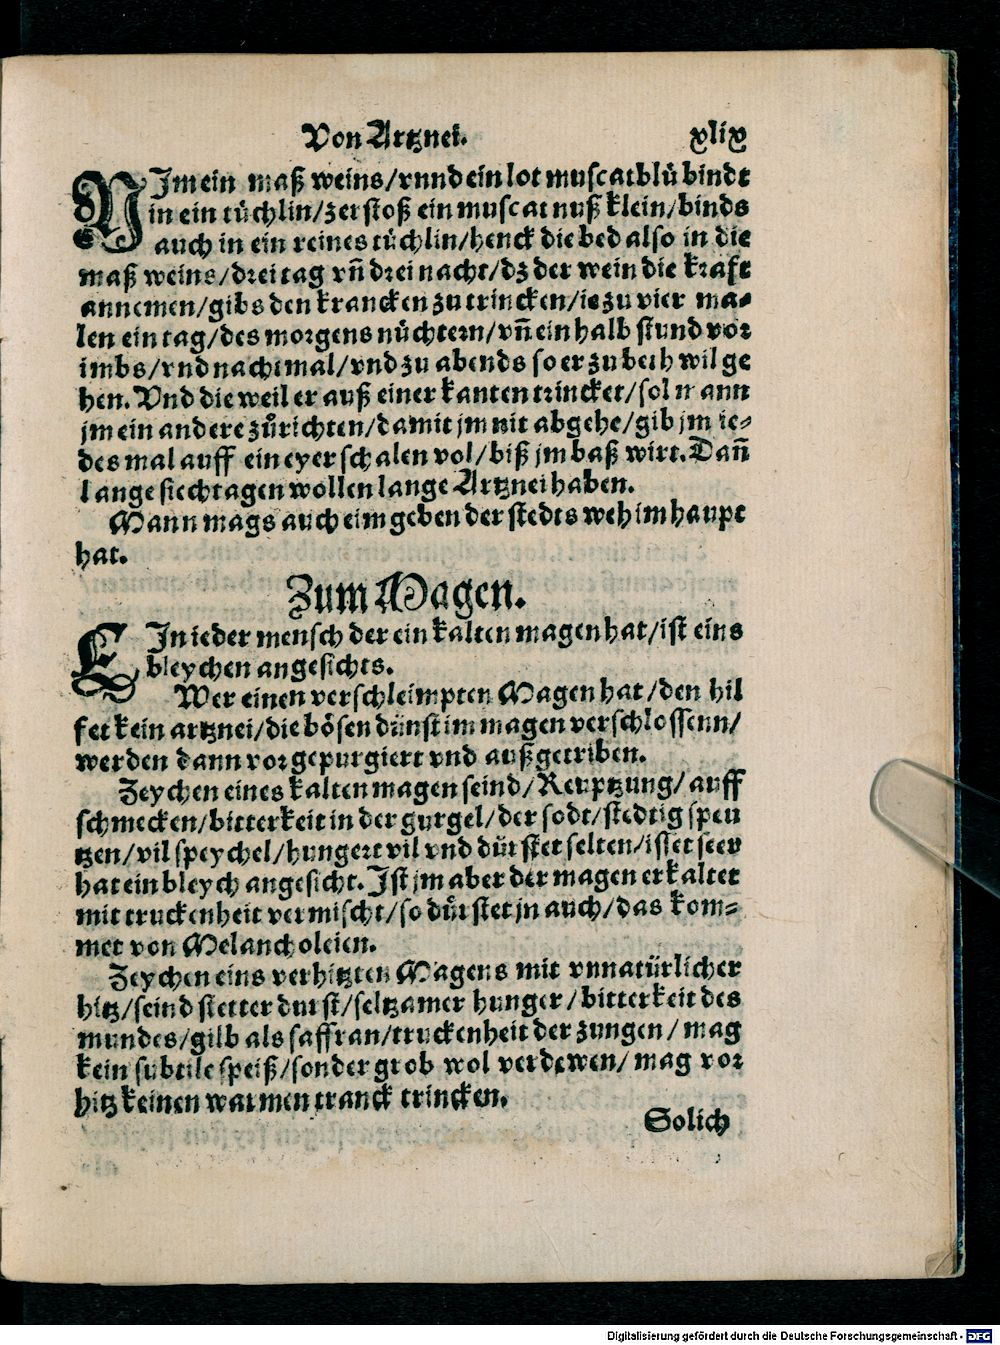 Von Artznei. xlix
NJm ein maß weins/vnnd ein lot muscatblů bindt
in ein tůchlin/zerstoß ein muscat nuß klein/binds
auch in ein reines tůchlin/henck die bed also in die
maß weins/drei tag vñ drei nacht/dz der wein die krafft
annemen/gibs den krancken zu trincken/ie zu vier ma-
len ein tag/des morgens nůchtern/vñ ein halb stund vor
imbs/vnd nachtmal/vnd zu abends so er zu beth wil ge
hen. Vnd die weil er auß einer kanten trincket/sol mann
jm ein andere zůrichten/damit jm nit abgehe/gib jm ie-
des mal auff ein eyerschalen vol/biß jm baß wirt. Dañ
lange siechtagen wollen lange Artznei haben.
Mann mags auch eim geben der stedts weh im haupt
hat.
Zum Magen.
EJn ieder mensch der ein kalten magen hat/ist eins
bleychen angesichts.
Wer einen verschleimpten Magen hat/den hil
fet kein artznei/die bösen dünst im magen verschlossenn/
werden dann vor gepurgiert vnd außgetriben.
Zeychen eines kalten magen seind/Reuptzung/auff
schmecken/bitterkeit in der gurgel/der sodt/stedtig speu
tzen/vil speychel/hungert vil vnd důrstet selten/istet seer
hat ein bleych angesicht. Jst jm aber der magen erkaltet
mit truckenheit vermischt/so důrstet jn auch/das kom-
met von Melancholeien.
Zeychen eins verhitzten Magens mit vnnatürlicher
hitz/seind stetter durst/seltzamer hunger/bitterkeit des
mundes/gilb als saffran/truckenheit der zungen/mag
kein subtile speiß/sonder grob wol verdewen/mag vor
hitz keinen warmen tranck trincken.
Solich
Digitalisierung gefördert durch die Deutsche Forschungsgemeinschaft - DFG